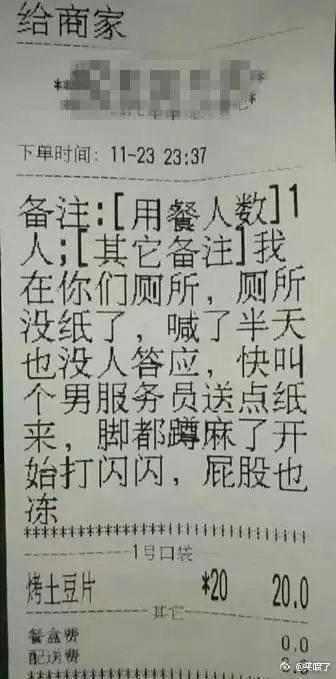 给商家
下单时间: 11-23 23:37
备注:[用餐人数]1
人;[其它备注]我
在你们厕所，厕所
没纸了，喊了半天
也没人答应，快叫
个男服务员送点纸
来，脚都蹲麻了开
始打闪闪，屁股也
冻
1号口袋
烤土豆片 *20 20.0
其它
餐盒费 0.0
配送费 0.0
@笑喷了